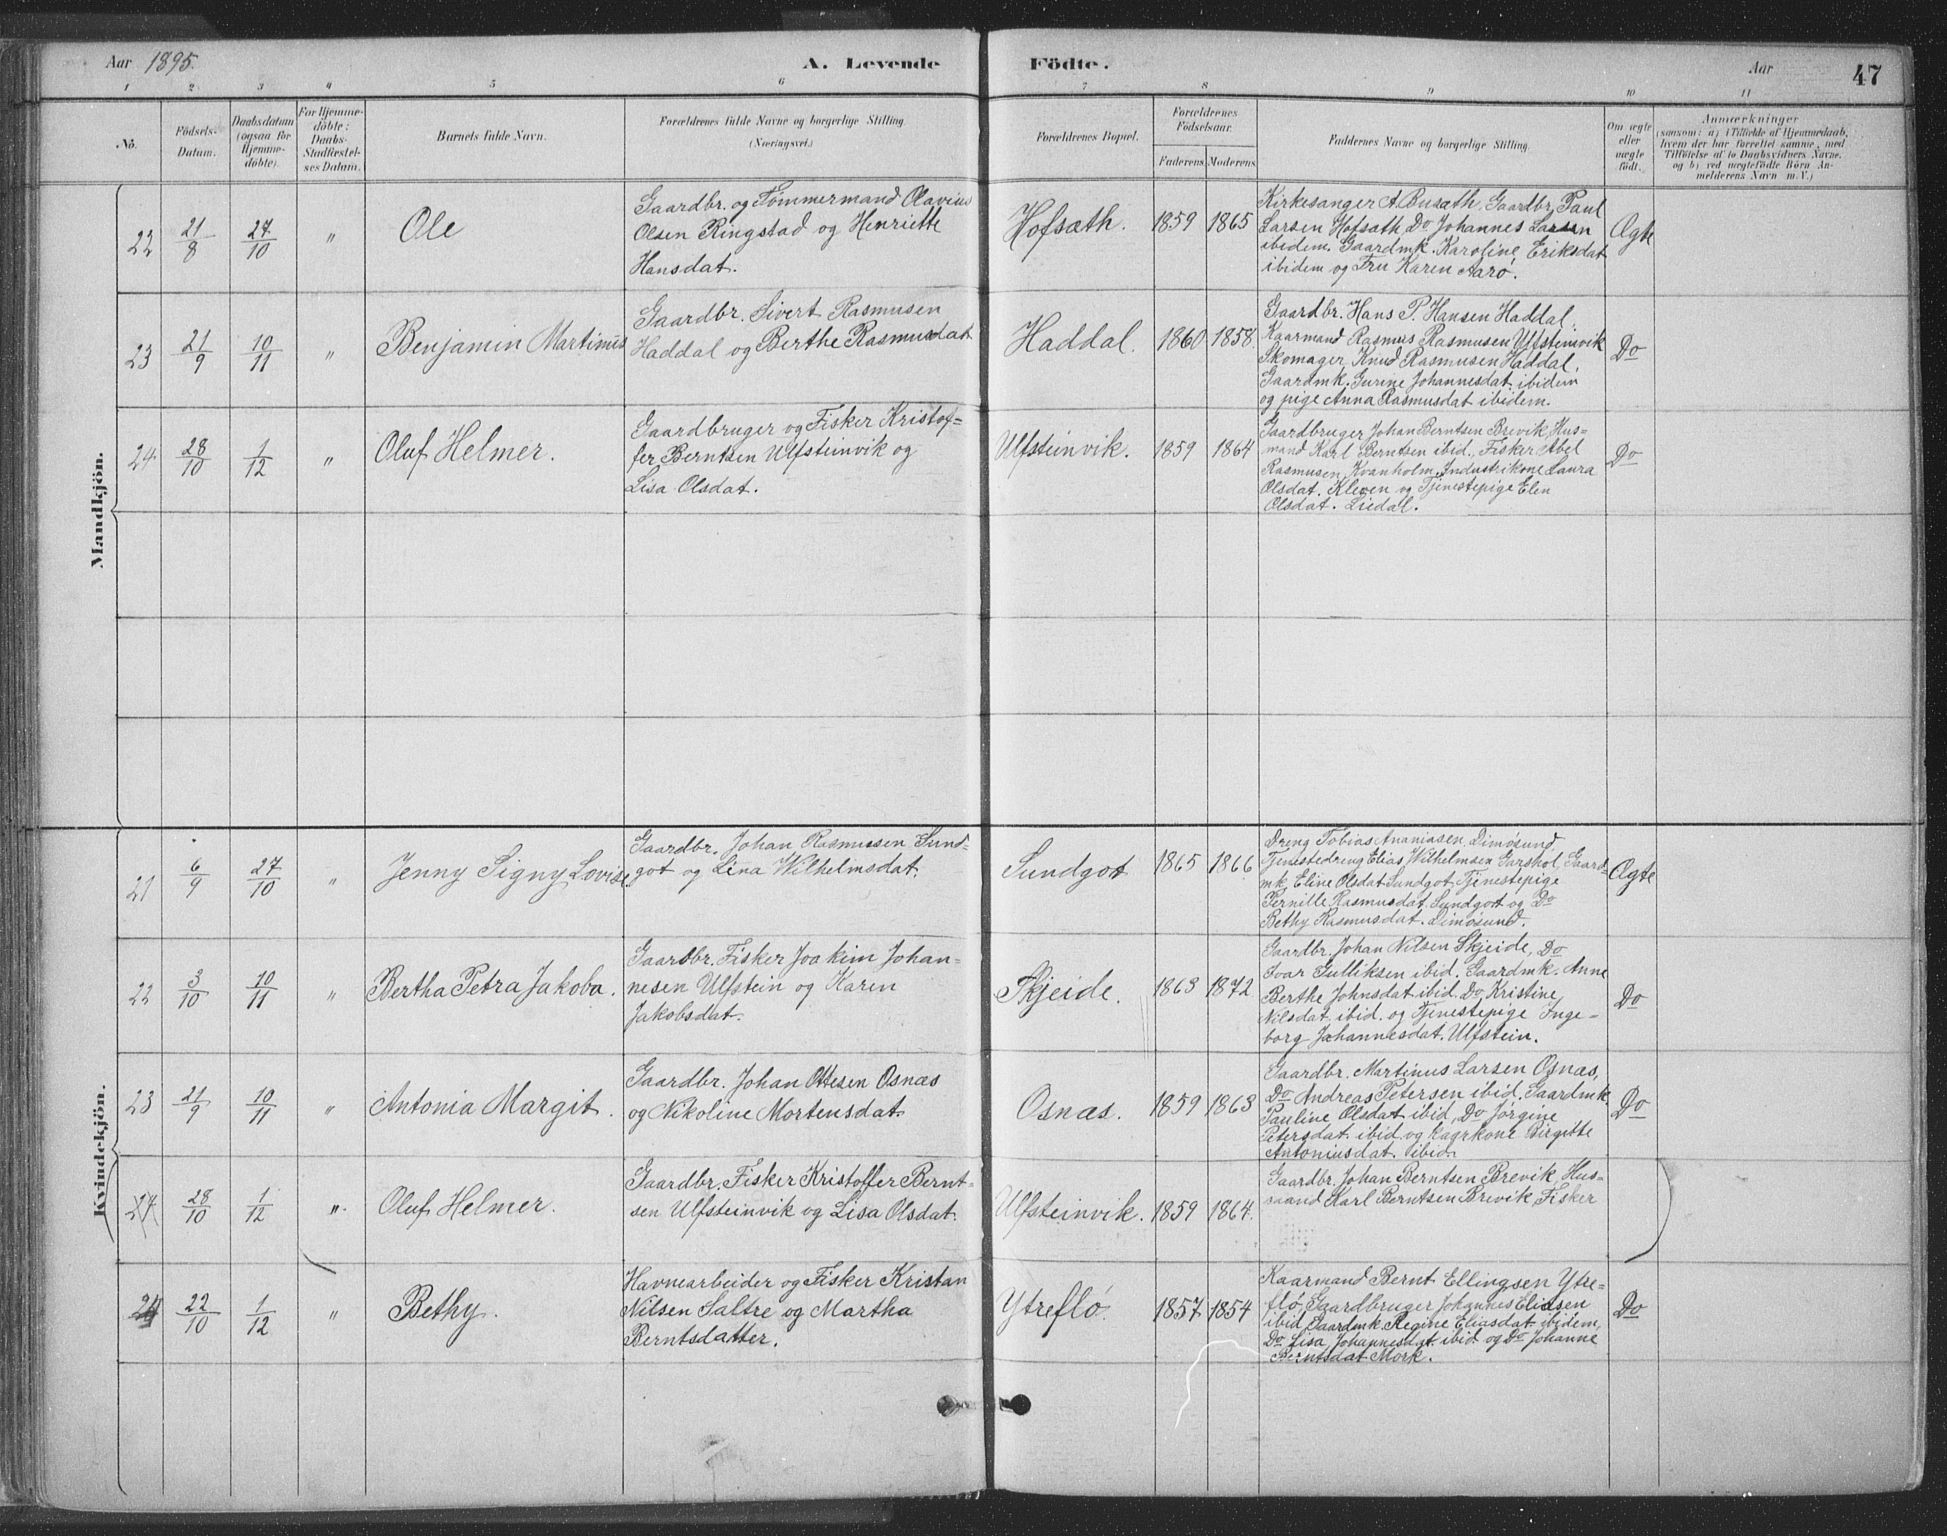 Aar 1895.
A. Levende Födte.
Aar
47
1 2 3 4 5 6 7 8 9 10 11
No.
Födsels-
Datum.
Daabsdatum
(ogsaa for
Hjemme-
döbte).
For Hjemme-
döbte:
Daabs-
Stadfæstel-
ses Datum.
Barnets fulde Navn.
Forældrenes fulde Navne og borgerlige Stilling.
(Næringsvei.)
Forældrenes Bopæl.
Forældrenes
Födselsaar.
Faderens Moderens
Faddernes Navne og borgerlige Stilling.
Om ægte
eller
uægte
födt.
Anmærkninger
(saasom: a) i Tilfælde af Hjemmedaab,
hvem der har forrettet samme, med
Tilföielse af to Daabsvidners Navne.
og b) ved uægtefödte Börn An-
melderens Navn m. V.)
Mandkjön.
22 21/8 27/10 "
Ole
Gaardbr. og Tömmermand Olavius
Olsen Ringstad og Henriette
Hansdat.
Hofsæth. 1859 1865
Kirkesanger A. Busæth. Gaardbr. Paul
Larsen Hofsæth Do Johannes Larsen
ibidem. Gaardmk. Karoline Eriksdat
ibidem og Fru Karen Aarö.
Ægte
23 21/9 10/11 "
Benjamin Martinus
Gaardbr. Sivert Rasmusen
Haddal og Berthe Rasmusdat
Haddal. 1860 1858
Gaardbr. Hans P. Hansen Haddal.
Kaarmand Rasmus Rasmusen Ulfsteinvik
Skomager Knud Rasmusen Haddal.
Gaardmk. Gurine Johannesdat ibidem
og pige Anna Rasmusdat ibidem.
Do
24 28/10 1/12 "
Oluf Helmer.
Gaardbruger og Fisker Kristof-
fer Berntsen Ulfsteinvik og
Lisa Olsdat.
Ulfsteinvik. 1859 1864
Gaardbruger Johan Berntsen Brevik, Hus-
mand Karl Berntsen ibid., Fisker Abel
Rasmusen Kvanholm, Industrikone Laura
Olsdat. Kleven og Tjenestepige Elen
Olsdat. Liedal.
Do
Kvindekjön.
21 6/9 27/10 "
Jenny Signy Lovise
Gaardbr. Johan Rasmussen Sund-
got og Lina Wilhelmsdat.
Sundgot 1865 1866
Dreng Tobias Ananiasen Dimösund
Tjenestedreng Elias Wilhelmsen Garshol Gaard-
mk. Eline Olsdat Sundgot Tjenestepige
Pernille Rasmusdat Sundgot og Do
Bethy Rasmusdat. Dimösund.
Ægte
22 3/10 10/11 "
Bertha Petra Jakoba.
Gaardbr. Fisker Joakim Johan-
nesen Ulfstein og Karen
Jakobsdat.
Skjeide. 1863 1872
Gaardbr. Johan Nilsen Skjeide, Do
Ivar Gulliksen ibid. Gaardmk. Anne
Berthe Johnsdat ibid. Do Kristine
Nilsdat ibid. og Tjenestepige Inge-
borg Johannesdat. Ulfstein.
Do
23 21/9 10/11 "
Antonia Margit.
Gaardbr. Johan Ottesen Osnæs
og Nikoline Mortensdat.
Osnæs. 1859 1863
Gaardbr. Martinus Larsen Osnæs,
Do Andreas Petersen ibid. Gaardmk.
Pauline Olsdat ibid, Do Jörgine
Petersdat ibid og Kagrkone Birgitte
Antoniusdat. ibid.
Do
24 28/10 1/12 "
Oluf Helmer.
Gaardbr. Fisker Kristoffer Bernt-
sen Ulfsteinvik og Lisa Olsdat.
Ulfsteinvik. 1859 1864.
Gaardbr. Johan Berntsen Brevik, Hus-
mand Karl Berntsen Brevik Fisker
24 22/10 1/12 "
Bethy.
Havnearbeider og Fisker Kristan
Nilsen Saltre og Martha
Berntsdatter.
Ytreflö. 1857 1854
Kaarmand Bernt Ellingsen Ytre-
flö, Gaardbruger Johannes Eliasen
ibid, Gaardmk Regine Eliasdat ibidem,
Do Lisa Johannesdat ibid og Do Johanne
Berntsdat Mork.
Do